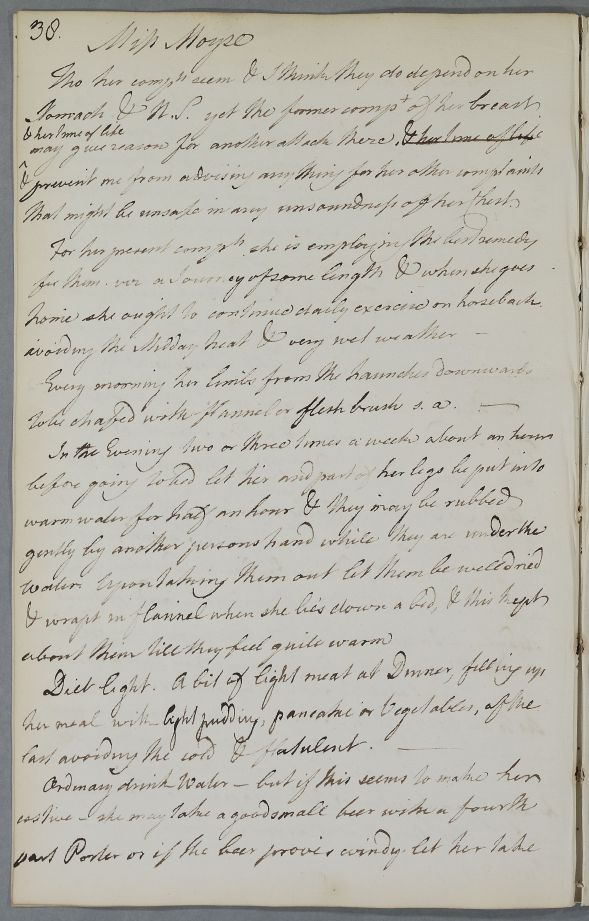 38.
Miss Moyse
Tho her compts seem & I think they do depend on her
Stomach & N.S. yet the former compt of her breast
& her time of life
may give reason for another attack there, & her time of life
& prevent me from advising any thing for her other complaints
that might be unsafe in any unsoundness of her Chest.
For her present compts she is employing the best remedy
for them. viz a Journey of some length & when she goes
home she ought to continue daily exercise on horseback
avoiding the Midday heat & very wet weather —
Every morning her limbs from the haunches downwards
to be chafed with flannel or flesh brush s. a. —
In the Evening two or three times a week about an hour
before going to bed let her and part of her legs be put into
warm water for half an hour & they may be rubbed
gently by another persons hand while they are under the
water. Upon taking them out let them be well dried
& wrapt in flannel when she lies down a bed, & this kept
about them till they feel quite warm
Diet light. A bit of light meat at Dinner, filling up
her meal with light pudding, pancake or Vegetables, of the
last avoiding the cold & flatulent. —
Ordinary drink Water — but if this seems to make her
costive — she may take a good small beer with a fourth
part Porter or if the beer proves windy let her take